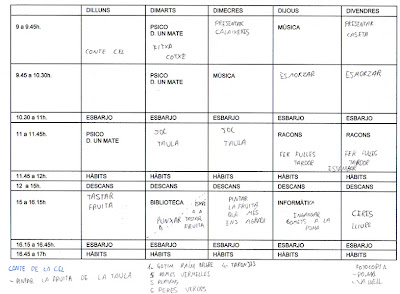 DILLUNS DIMARTS DIMECRES DIJOUS DIVENDRES
9 a 9.45h. PSICO D. UN MATE PRESENTAR MÚSICA PRESENTAR CASETA
CONTE CEL FITXA COTXE
9.45 a 10.30h. PSICO D. UN MATE MÚSICA ESMORZAR ESMORZAR
10.30 a 11h. ESBARJO ESBARJO ESBARJO ESBARJO ESBARJO
11 a 11.45h. PSICO D. UN MATE JOC TAULA JOC TAULA RACONS RACONS
FER FULLES TARDOR FER FULLES TARDOR
11.45 a 12h. HÀBITS HÀBITS HÀBITS HÀBITS HÀBITS
12 a 15h. DESCANS DESCANS DESCANS DESCANS DESCANS
15 a 16.15h TASTAR FRUITA BIBLIOTECA PINTAR LA FRUITA QUE MÉS ENS AGRADA INFORMÀTICA
PUNXAR TASTAR FRUITA GOMETS A LA POMA CERES LLIURE
16.15 a 16.45h. ESBARJO ESBARJO ESBARJO ESBARJO ESBARJO
16.45 a 17h. HÀBITS HÀBITS HÀBITS HÀBITS HÀBITS
CONTE DE LA CEL
- PINTAR LA FRUITA DE LA TAULA
POMES VERMELLES
6 PERES VERDES
FOTOCOPIA
- POMA